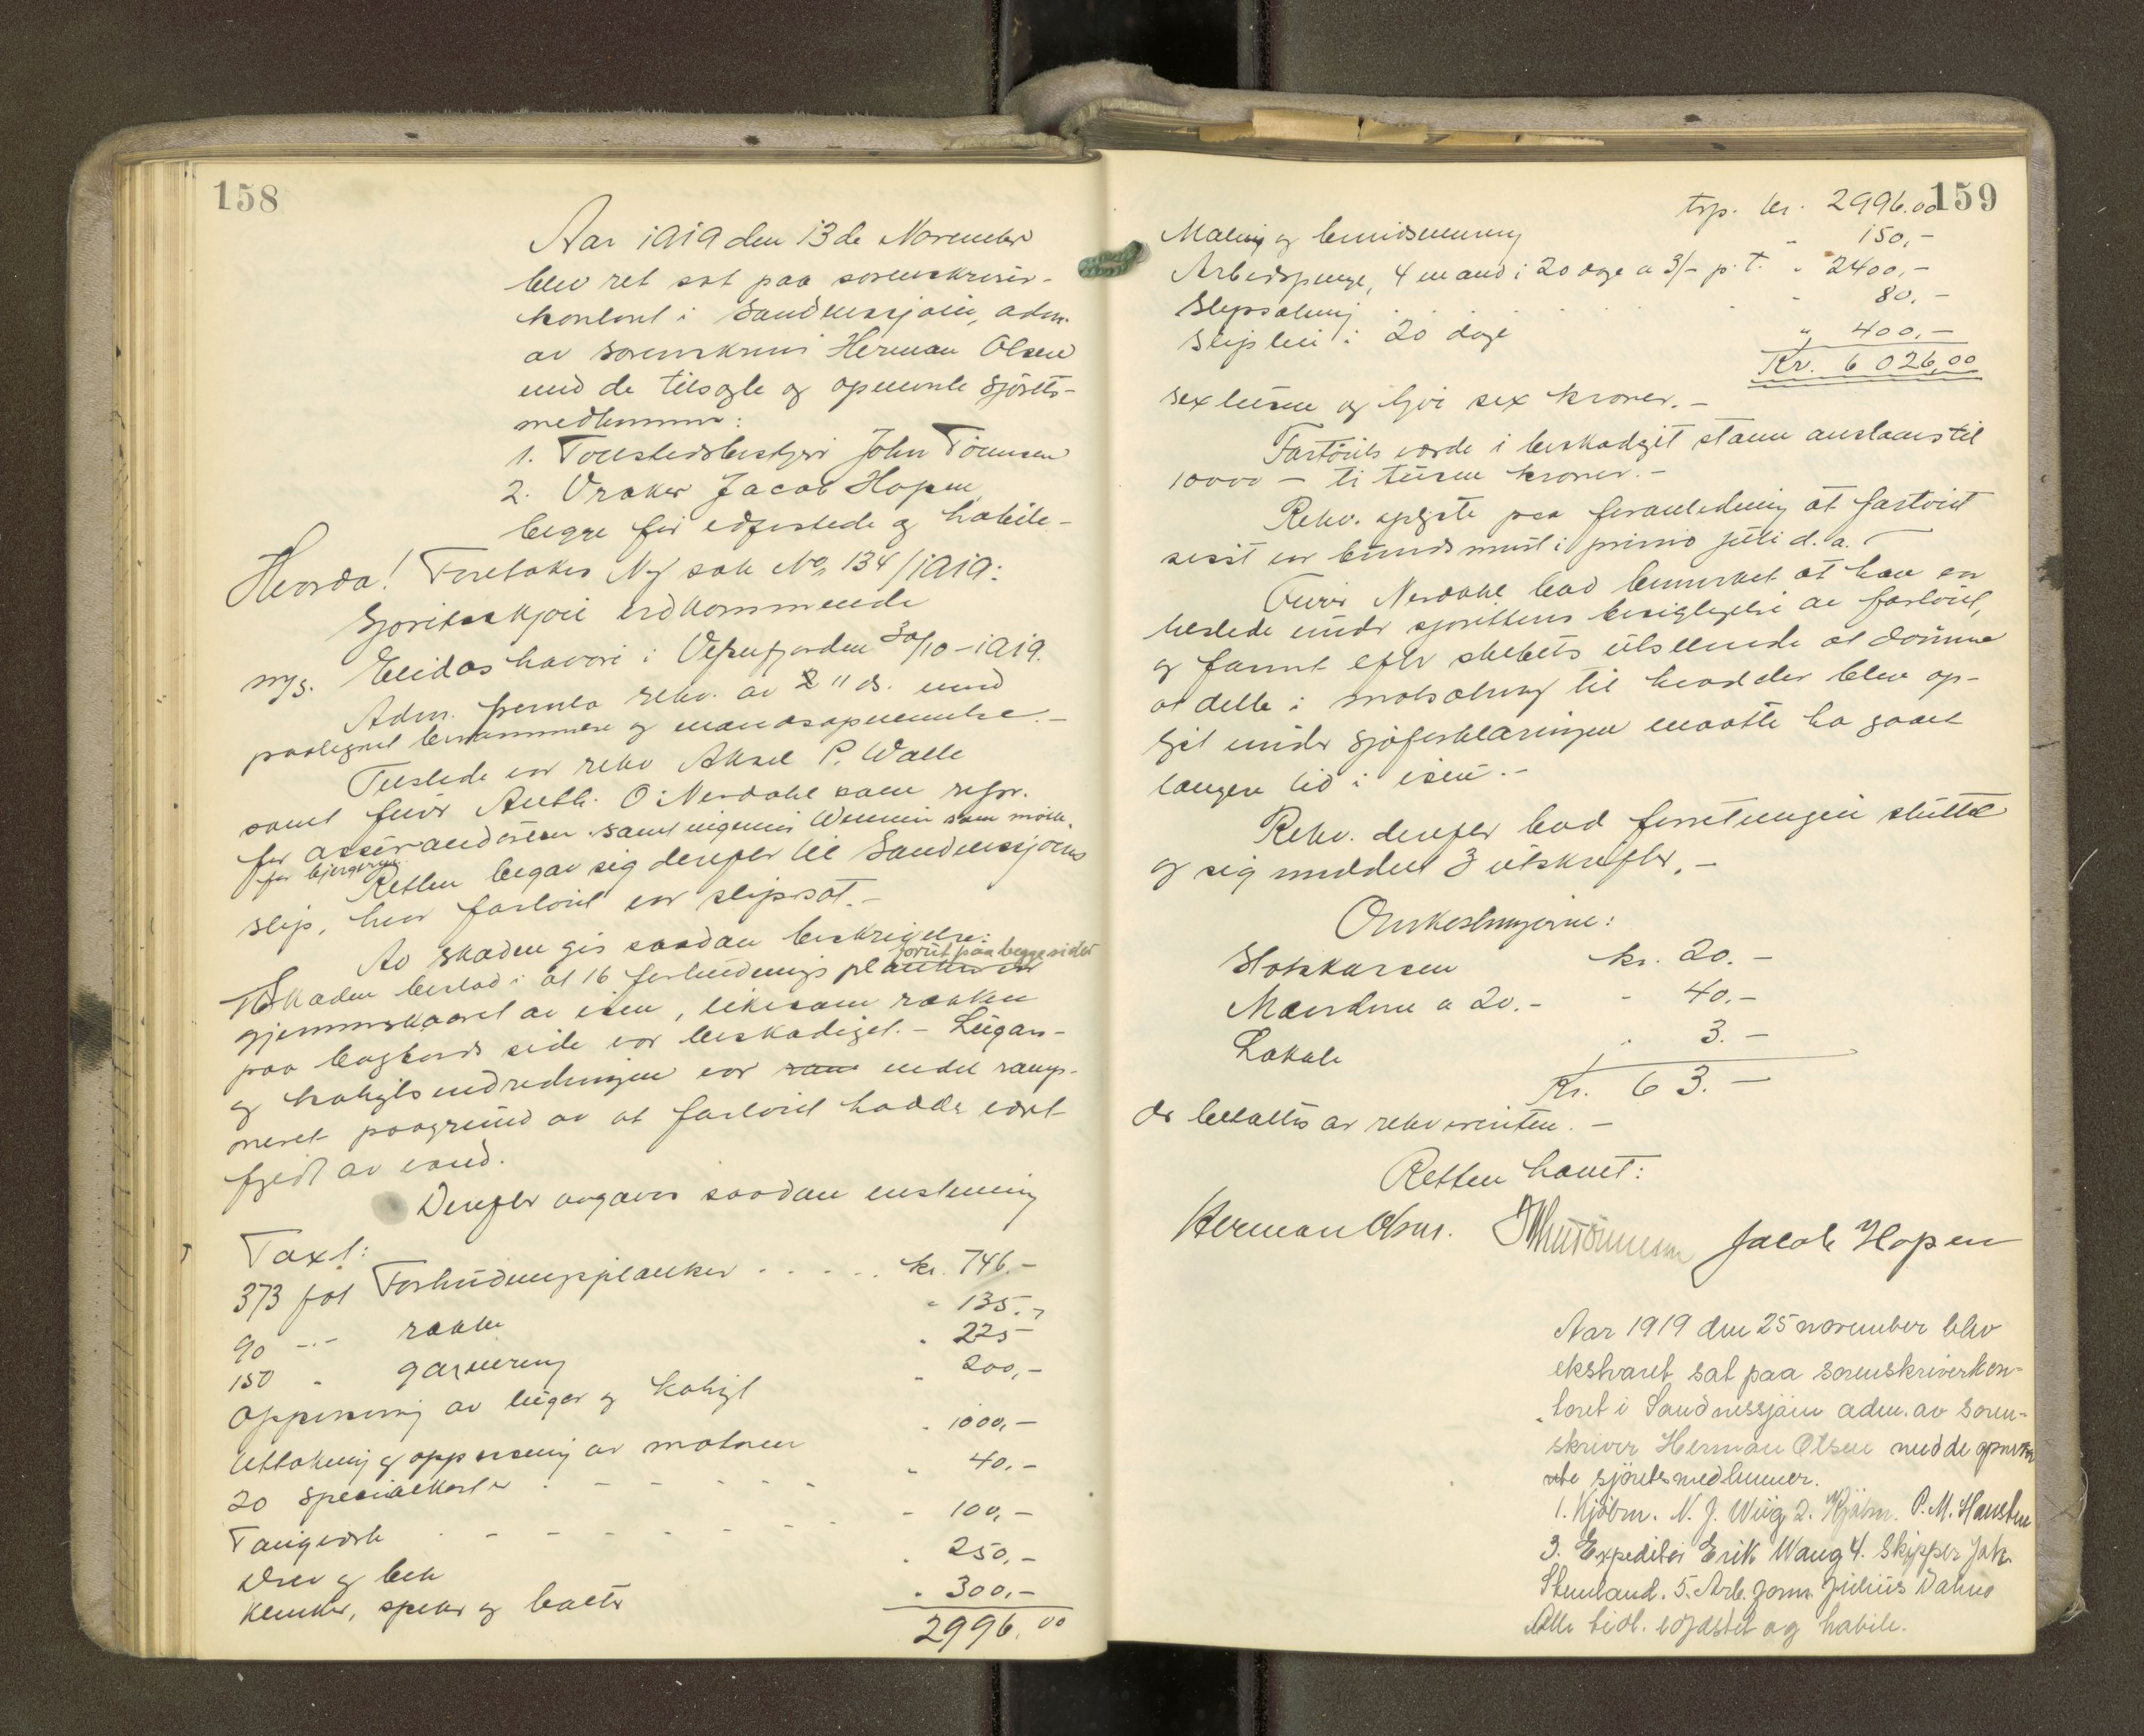 158
Aar 1919 den 13de November
blev ret sat paa sorenskriver-
kontoret i Sandnessjøen, adm.
av sorenskriver Herman Olsen
med de tilsagte og opnevnte sjørets-
medlemmer:
1. Toldstedsbestyrer John Tønnesen
2. Vraker Jacob Hopen
begge før edfæstede og habile -
Hvorda! Foretokes Ny sak No 134/1919:
Sjøretsskjøn vedkommende
m/s. Elidas havari i Vefsenfjorden 30/10-1919.
Adm. fremla rekv. av 11 ds. med
paategnet berammelse og mandsopnevnelse. -
Tilstede var rekv Aksel P. Walle
samt fuldm. Anth. O. Nerdahl som repr.
for assurandøren samt ingeniør som
for bjergeren.
Retten begav sig derefter til Sandnessjøens
slip, hvor fartøiet var slipsat. -
Av skaden gis saadan beskrivelse:
Skaden bestod i at 16 forhudningsplanker var forut paa begge sider
gjennemskaaret av isen, likesom raaken
paa bagbords side var beskadiget. - Lugar-
og kahytsindredningen var ram medet ramp-
oneret paagrund av at fartøiet hadde vært
fyldt av vand.
Derefter avgaves saadan enstemmig
Taxt:
373 fot Forhudningsplanker . . . . . kr. 746.-
90 -"- raake " 135.-
150 " garnering " 225-
Oppussing av lugar og kahyt " 200,-
Uttakning og oppussing av motoren " 1000,-
20 specialbolter . - - - - " 40.-
Tauverk - - - - - - " 100,-
Drev og bek " 250,-
Klinker, spiker og bolter " 300,-
2996.00
159
trp. kr. 2996.00
Maling og bundsmurning " 150,-
Arbeidspenge, 4 mand i 20 dage a 3/- p. t. " 2400,-
Slipsætning . . . . " 80.-
Slipleie i 20 dage " 400,-
Kr. 6 026,00
sextusen og tyve sex kroner. -
Fartøiets værdi i beskadiget stand anslaaes til
10000 - ti tusen kroner. -
Rekv. oplyste paa foranledning at fartøiet
sidst var bundsmurt i primo juli d. a. -
Fuldm. Nerdahl bad bemerket at han var
tilstede under sjørettens besigtigelse av fartøiet,
og fant efter skibets utseende at dømme
at dette i motsætning til hvad der blev op-
git under sjøforklaringen maatte ha gaat
længere tid i isen. -
Rekv. derefter bad forretningen sluttet
og sig meddelt 3 utskrifter. -
Omkostningerne:
Hofskassen kr. 20. -
Mændene a 20.- " 40.-
Lokale " 3. -
Kr. 63. -
der betaltes av rekvirenten. -
Retten hævet:
Herman Olsen. John Tønnesen Jacob Hopen
Aar 1919 den 25 november blev
ekstraret sat paa sorenskriverkon-
toret i Sandnessjøen adm. av soren-
skriver Herman Olsen med de opnevn-
te sjøretsmedlemmer.
1. Kjøbm. N. J. Wiig 2. Kjøbm. P. M. Hansten
3. Expeditør Erik Waag 4. Skipper Jak.
Stenland. 5. Arb. form. Julius Dahle
Alle tidl. edfæstet og habile.